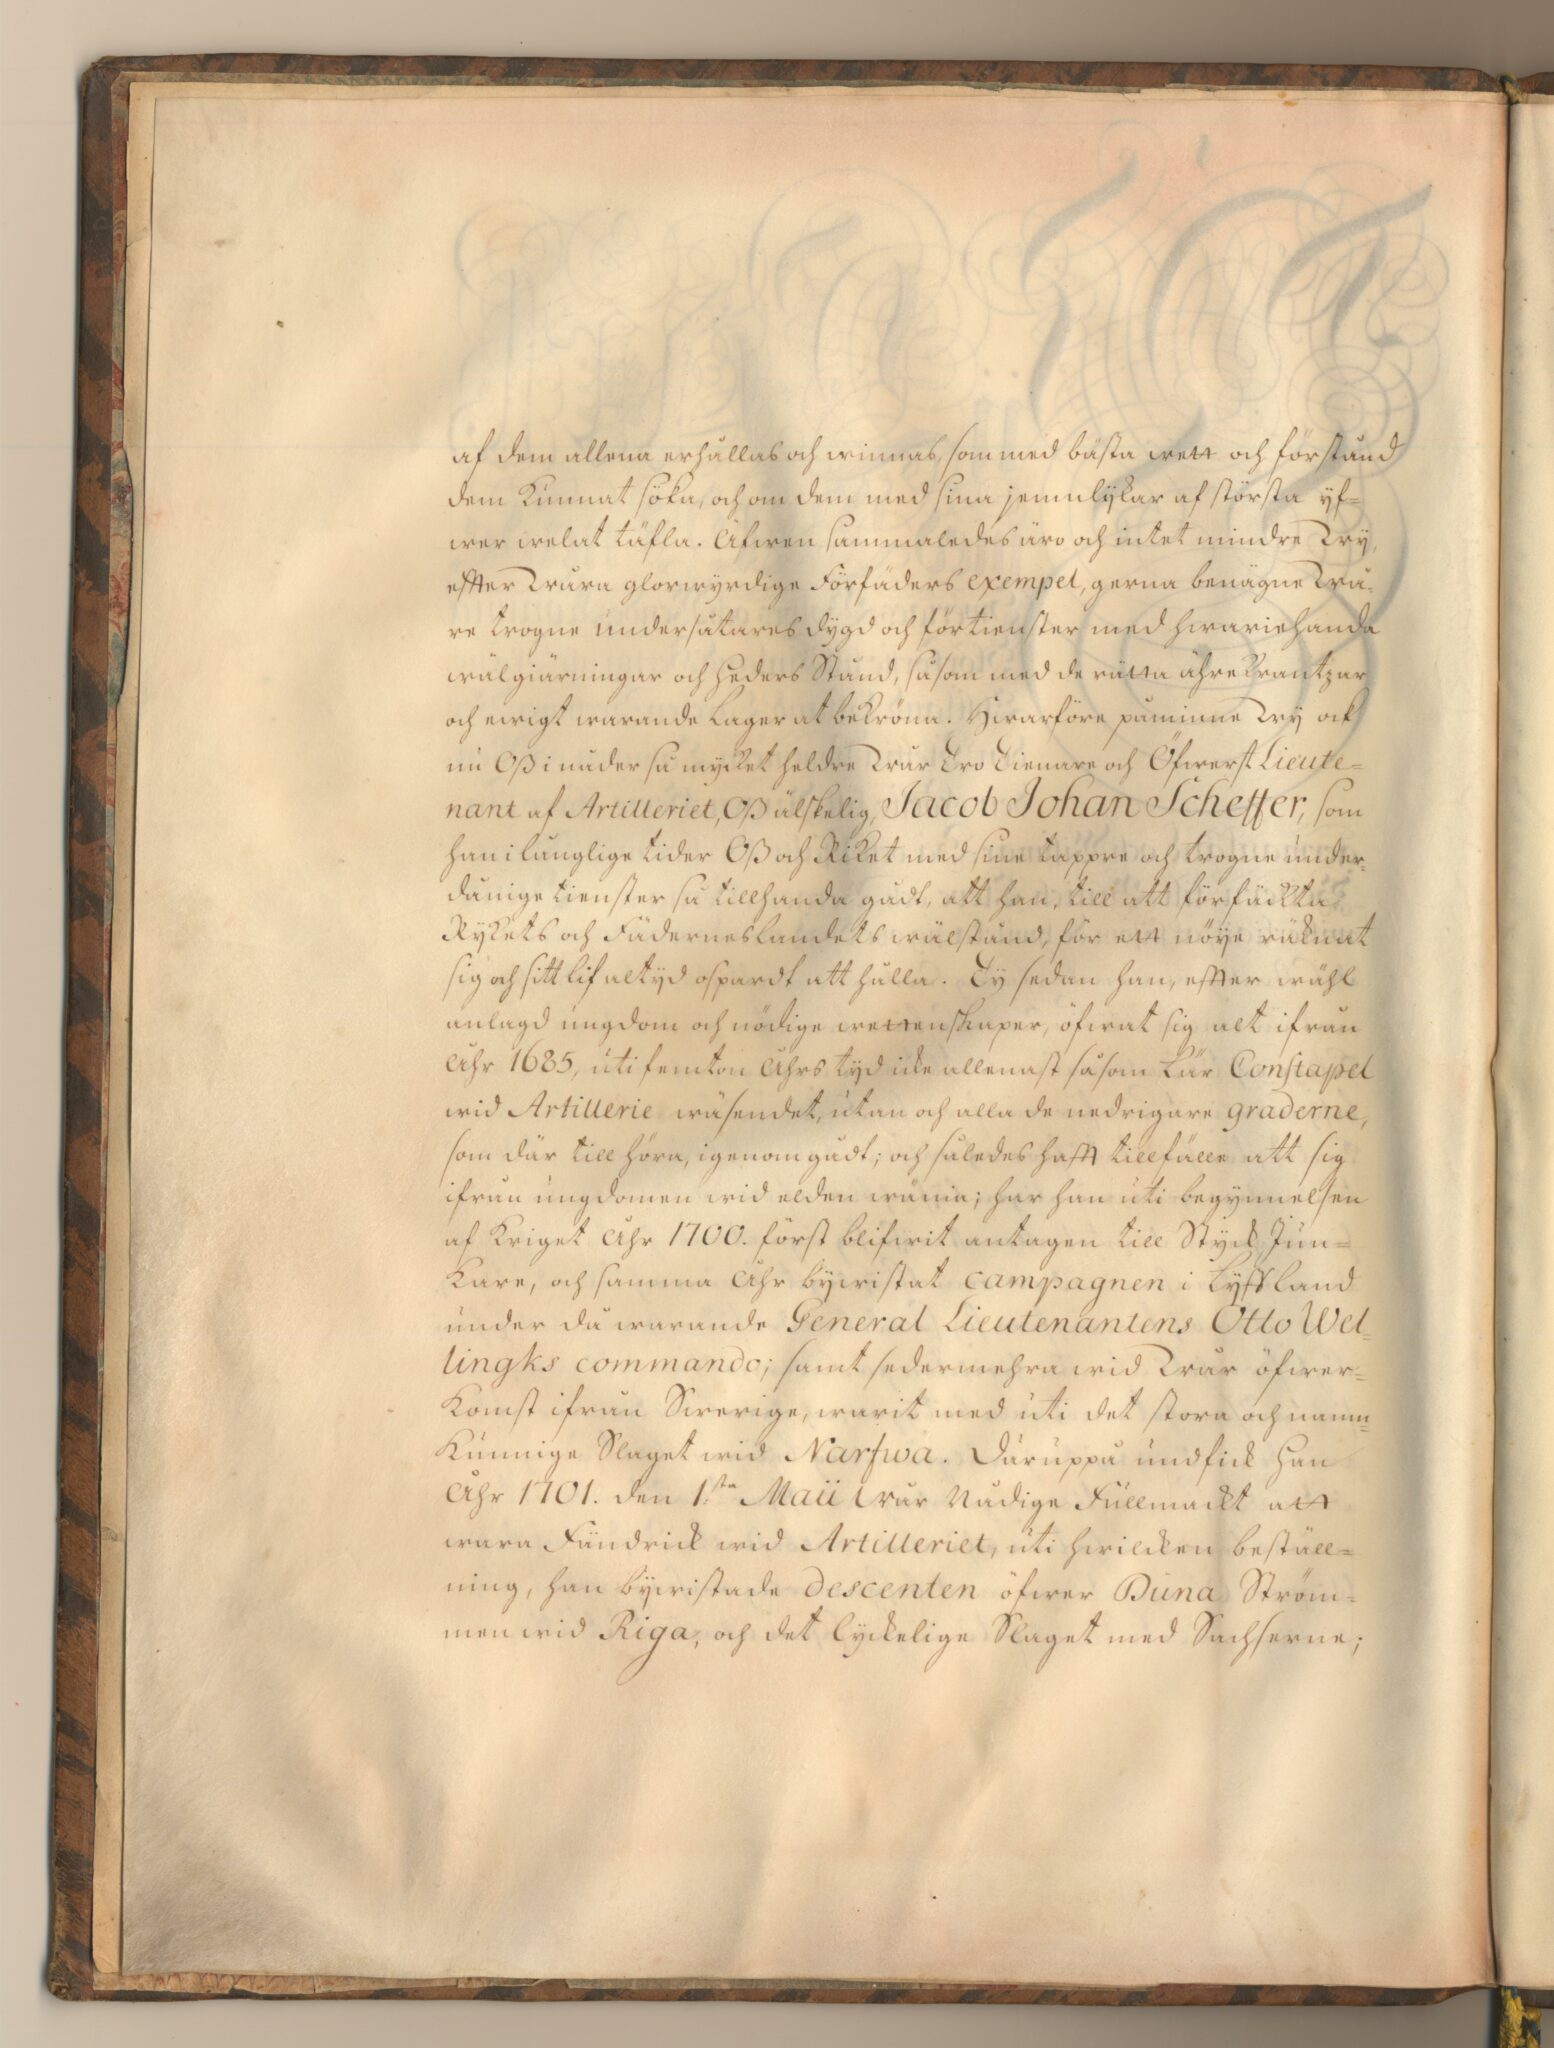 af dem allena erhållas och winnas, som med bästa wett och förstånd
dem kunnat söka, och om dem med sina jemnlykar af största yf=
wer welat täfla. Äfwen sammaledes äro och intet mindre Wy,
effter Wåra glorwyrdige Förfäders exempel, gerna benägne Wå-
re trogne undersåtares dygd och förtienster med hwariehanda
wälgiärningar och heders Stånd, såsom med de rätta ährekrantzar
och ewigt warande lager at bekröna. Hwarföre påminne Wy ock
nu Oß i nåder så mycket heldre Wår Tro Tienare och Öfwerst Lieute=
nant af Artilleriet, Oß älskelig, Jacob Johan Scheffer, som
han i långlige tider Oß och Riket med sine tappre och trogne under-
dånige tienster så tillhanda gådt, att han, till att förfäckta
Rykets och Fäderneslandets wälstånd, för ett nöye räknat
sig och sitt lif altyd ospardt att hålla. Ty sedan han, effter wähl
anlagd ungdom och nödige wettenskaper, öfwat sig alt ifrån
Åhr 1685, uti femton Åhrs tyd icke allenast såsom Lär Constapel
wid Artillerie wäsendet, utan och alla de nedrigare graderne,
som där till höra, igenomgådt; och således hafft tillfälle att sig
ifrån ungdomen wid elden wänia; har han uti begynnelsen
af Kriget Åhr 1700. först blifwit antagen till Styck Jun=
kare, och samma Åhr bywistat campagnen i Lyffland
under då warande General Lieutenantens Otto Wel=
lingks commando; samt sedermehra wid Wår öfwer=
komst ifrån Swerige, warit med uti det stora och namn=
kunnige Slaget wid Narfwa. Däruppå undfick han
Åhr 1701. den 1:sta Maii Wår Nådige Fullmackt att
wara Fändrick wid Artilleriet, uti hwilcken beställ=
ning, han bywistade descenten öfwer Düna Ström=
men wid Riga, och det lyckelige Slaget med Sachserne;